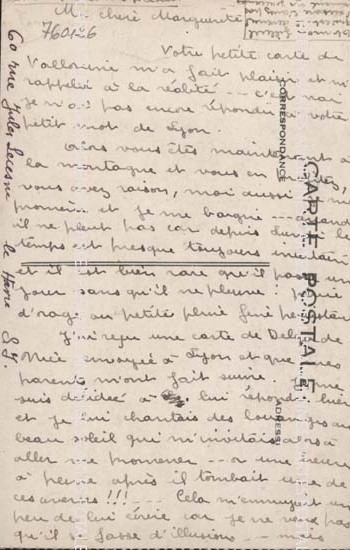 Ma chère Marguerite
76026
Votre petite carte de
Vallouise m'a fait plaisir et m'a
rappelée à la réalité -- c'est vrai
je n'ai pas encore répondu à votre
petit mot de Lyon.
Alors vous êtes maintenant à
la montagne et vous en
vous avez raison, moi aussi je me
promène et je me baigne -- quand
il ne pleut pas car depuis le
temps est presque toujours incertain
et il est bien rare qu'il passe un
jour sans qu'il ne pleuve : pluie
d'orage ou petite pluie fine
J'ai reçu une carte de
envoyée à Lyon et que mes
parents m'ont fait suivre. Je me
suis décidée à lui répondre hier
et je lui chantais des louanges au
beau soleil qui m'invitait alors à
aller me promener -- or une heure
à peine après il tombait une de
ces averses !!! -- Cela m'ennuyait un
peu de lui écrire car je ne veux pas
qu'il se fasse d'illusions -- mais
60 rue Jules Lecesne Le Havre S.I.
CORRESPONDANCE
CARTE POSTALE
ADRESSE